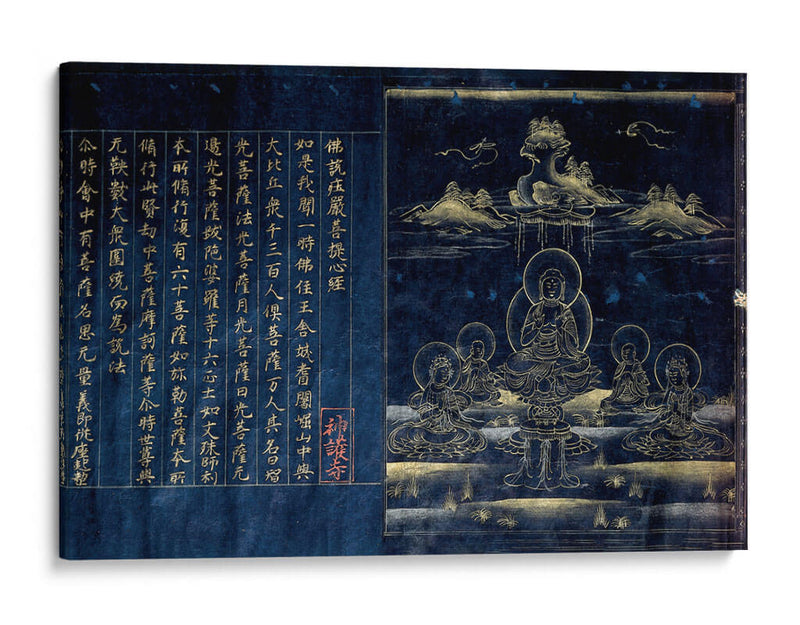 佛說莊嚴菩提心經
如是我聞一時佛住王舍城耆闍崛山中與
大比丘衆千三百人俱菩薩万人其名曰增
光菩薩法光菩薩月光菩薩日光菩薩无
邊光菩薩跋陀婆羅等十六正士如文殊師利
本所脩行復有六十菩薩如弥勒菩薩本所
脩行此賢劫中菩薩摩訶薩等尒時世尊與
无鞅數大衆圍繞而為說法
尒時會中有菩薩名思无量義即從座起整
神護寺